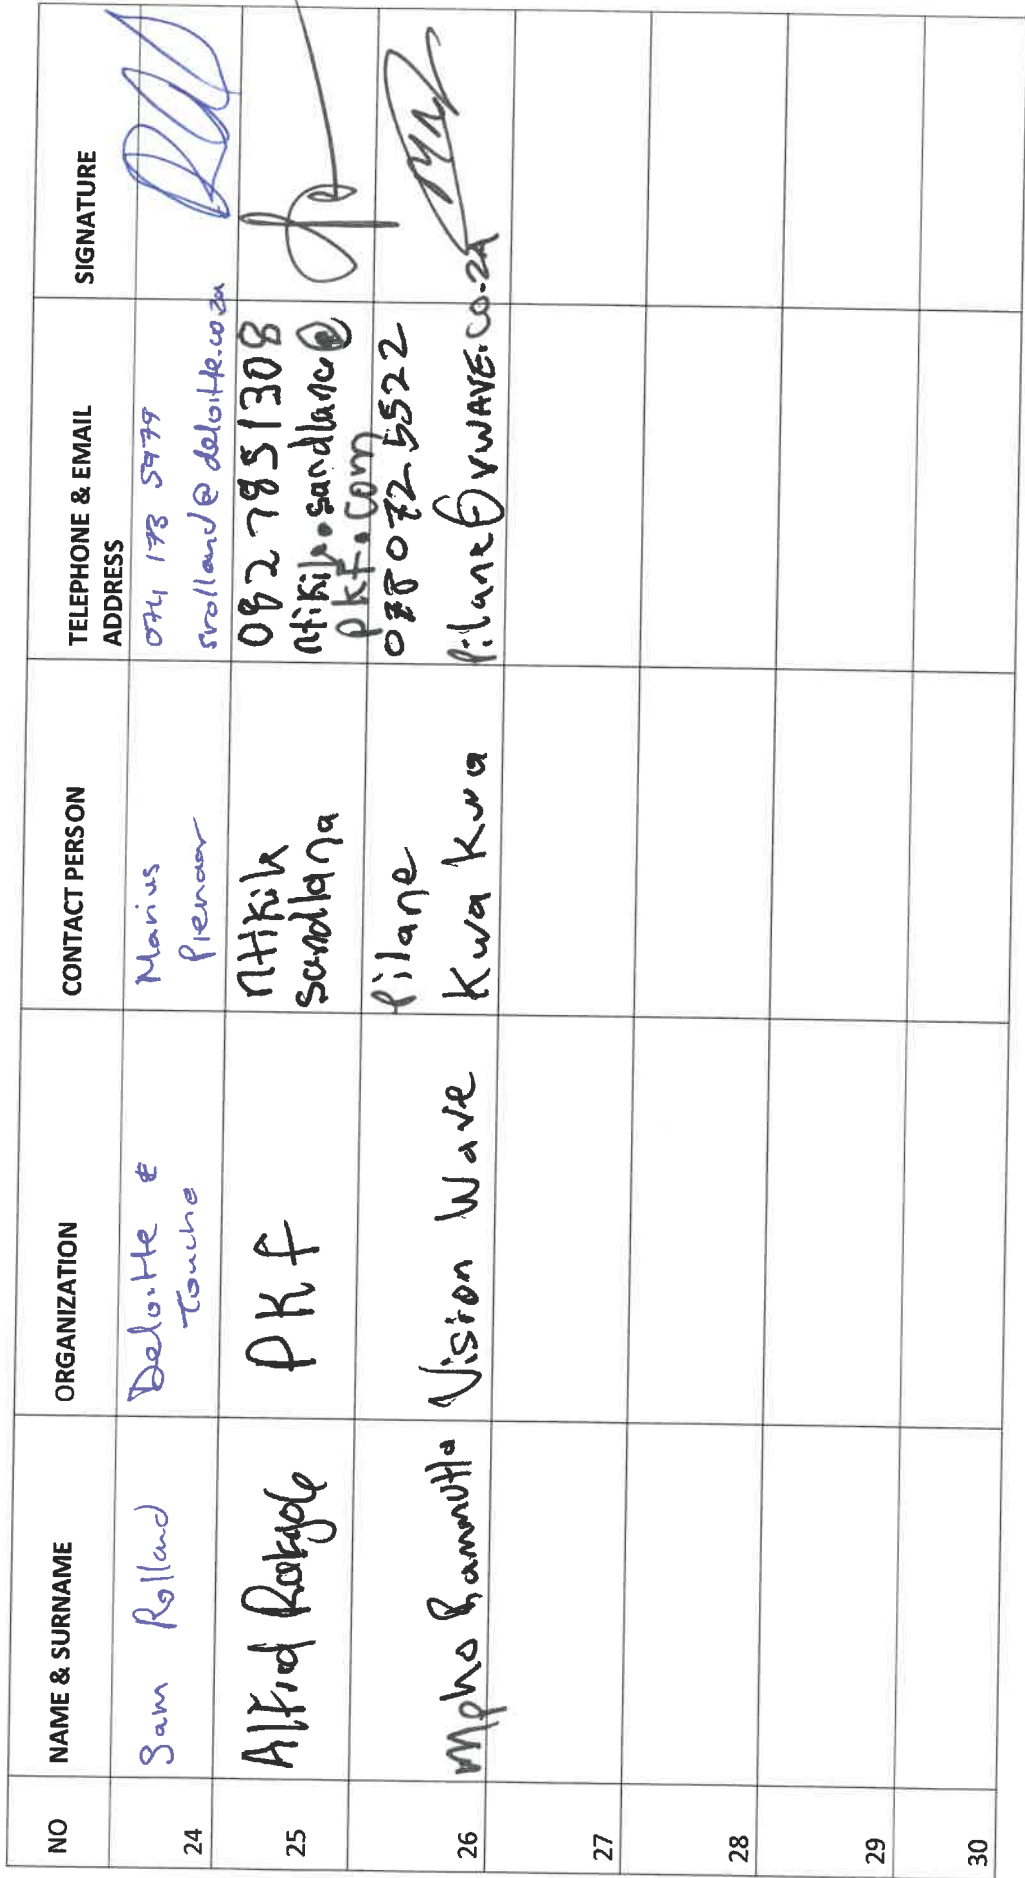 NO NAME & SURNAME ORGANIZATION CONTACT PERSON TELEPHONE & EMAIL ADDRESS SIGNATURE
24 Sam Rolland Deloitte & Touche Marius Pienaar 074 173 5979
srolland@deloitte.co.za
25 Alfred PKF Ntikila Sandlana 0827851308
ntikila.sandlana@
pkf.com
26 Mpho Rammutla Vision Wave Pilane Kwa Kwa 0780725522
Pilane@vwAVE.co.zA
27
28
29
30